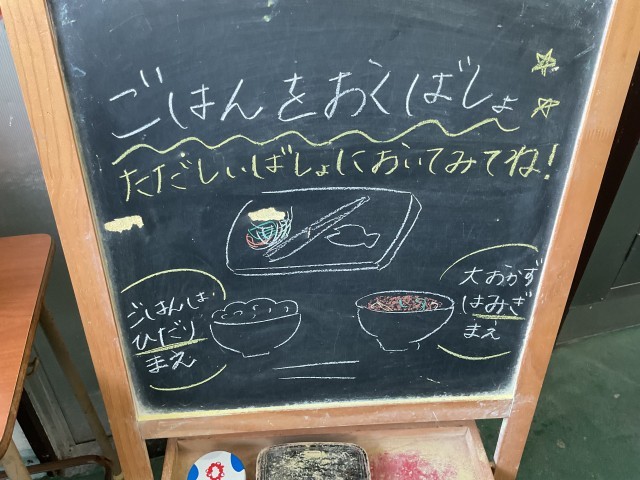 ごはんをおくばしょ
ただしいばしょにおいてみてね!
ごはんは
ひだり
まえ
大おかず
はみぎ
まえ